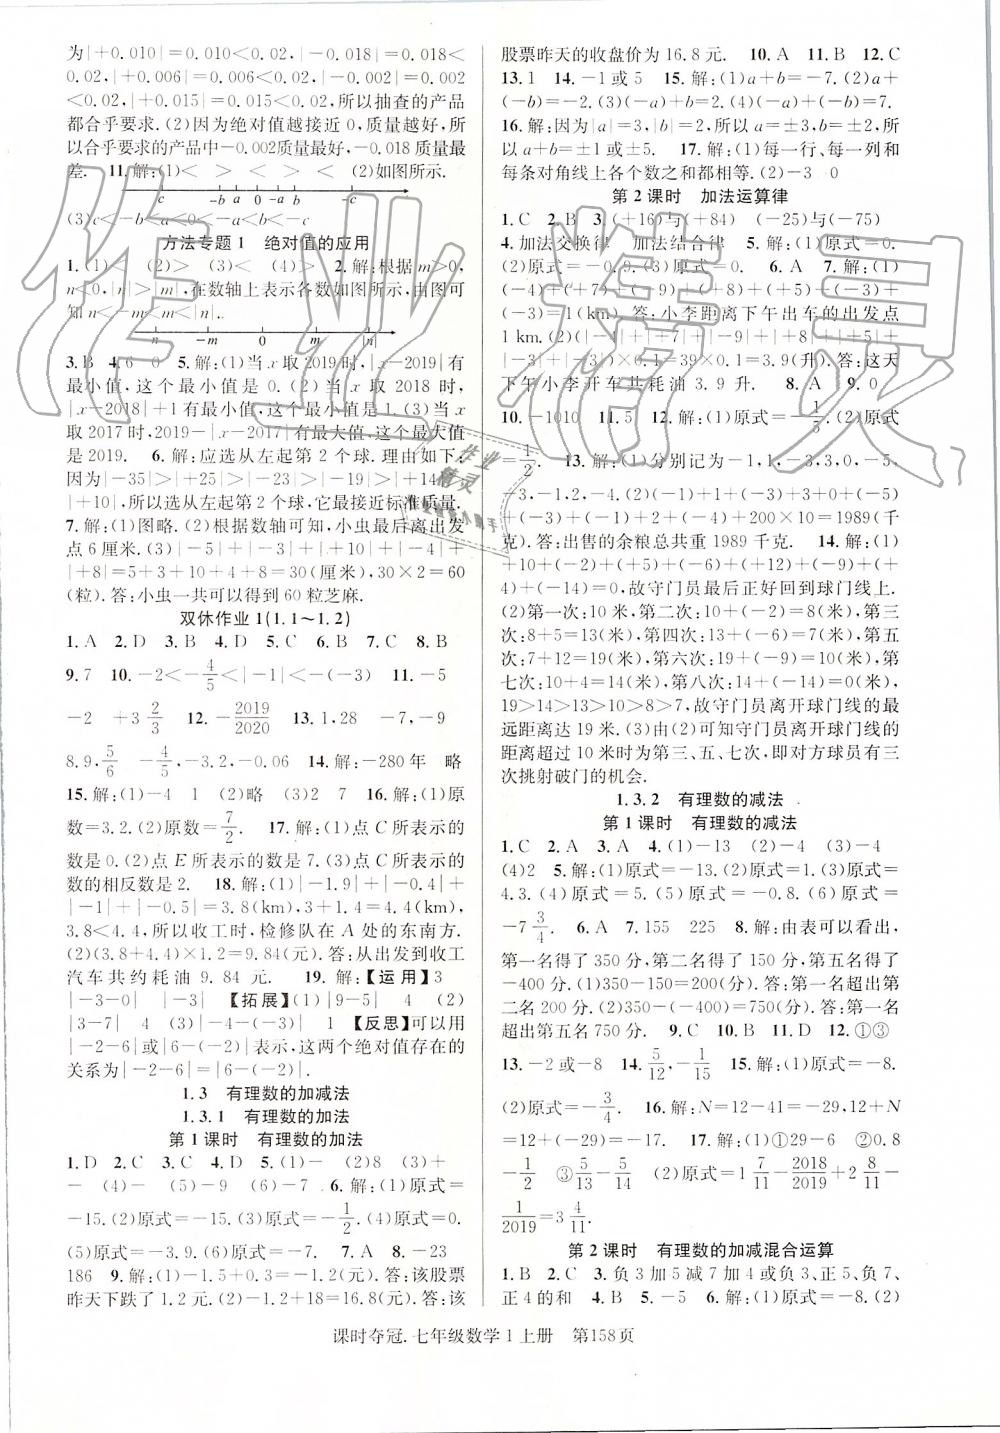 为|+0.010|=0.010<0.02,|-0.018|=0.018<
0.02,|+0.006|=0.006<0.02,|-0.002|=0.002
<0.02,|+0.015|=0.015<0.02,所以抽查的产品
都合乎要求.(2)因为绝对值越接近0,质量越好,所
以合乎要求的产品中-0.002质量最好,-0.018质量最
差. 11.解:(1)< < > (2)如图所示.
c -b a 0 -a b -c
(3)c<-b<a<0<-a<b<-c
方法专题1 绝对值的应用
1.(1)< (2)> (3)< (4)> 2.解:根据m>0,
n<0,|n|>|m|,在数轴上表示各数如图所示,由图可
知n<-m<m<|n|.
n -m 0 m |n|
3.B 4.6 0 5.解:(1)当x取2019时,|x-2019|有
最小值,这个最小值是0.(2)当x取2018时,
|x-2018|+1有最小值,这个最小值是1.(3)当x
取2017时,2019-|x-2017|有最大值,这个最大值
是2019. 6.解:应选从左起第2个球.理由如下:
因为|-35|>|+25|>|-20|>|+15|>|+14|>
|+10|,所以选从左起第2个球,它最接近标准质量.
7.解:(1)图略.(2)根据数轴可知,小虫最后离出发
点6厘米.(3)|-5|+|-3|+|+10|+|-4|+
|+8|=5+3+10+4+8=30(厘米),30×2=60
(粒).答:小虫一共可以得到60粒芝麻.
双休作业1(1.1~1.2)
1.A 2.D 3.D 4.D 5.C 6.B 7.C 8.B
9.7 10.-2<-4/5<|-1|<-(-3) 11.-5
-2 +3 2/3 12.-2019/2020 13.1,28 -7,-9
8.9,5/6 -4/5,-3.2,-0.06 14.解:-280年 略
15.解:(1)-4 1 (2)略 (3)2 7 16.解:(1)原
数=3.2.(2)原数=7/2. 17.解:(1)点C所表示的
数是0.(2)点E所表示的数是7.(3)点C所表示的
数的相反数是2. 18.解:(1)|-1.9|+|-0.4|+
|-1|+|-0.5|=3.8(km),3+1.4=4.4(km),
3.8<4.4,所以收工时,检修队在A处的东南方.
(2)(3.8+4.4)×1.2=9.84(元).答:从出发到收工
汽车共约耗油9.84元. 19.解:【运用】3
|-3-0| |-3| 【拓展】(1)|9-5| 4 (2)
|3-7| 4 (3)|-4-(-3)| 1 【反思】可以用
|-2-6|或|6-(-2)|表示,这两个绝对值存在的
关系为|-2-6|=|6-(-2)|.
1.3 有理数的加减法
1.3.1 有理数的加法
第1课时 有理数的加法
1.D 2.C 3.C 4.D 5.(1)- (2)8 (3)+
- (4)- (5)- (6)- 6.解:(1)原式=
-15.(2)原式=-15.(3)原式=-1/2.(4)原式=0.
(5)原式=-9.(6)原式=-3. 7.A 8.-23
186 9.解:(1)-1.5+0.3=-1.2(元).答:该股票
昨天下跌了1.2元.(2)-1.2+18=16.8(元).答:该
股票昨天的收盘价为16.8元. 10.A 11.B 12.C
13.1 14.-1或5 15.解:(1)a+b=-7.(2)a+
(-b)=-2.(3)(-a)+b=2.(4)(-a)+(-b)=7.
16.解:因为|a|=3,|b|=2,所以a=±3,b=±2,所
以a+b=±1或±5. 17.(1)每一行、每一列和
每条对角线上各个数之和都相等.(2)-3 0
第2课时 加法运算律
1.C 2.B 3.(+16)与(+84) (-25)与(-75)
4.加法交换律 加法结合律 5.解:(1)原式=0.
(2)原式=-0.9.(3)原式=0. 6.A 7.解:(1)
(-4)+(+7)+(-9)+(+8)+(+5)+(-3)+
(-3)=1(km).答:小李距离下午出车的出发点
1km.(2)(|-4|+|+7|+|-9|+|+8|+|+5|+
|-3|+|-3|)×0.1=39×0.1=3.9(升).答:这天
下午小李开车共耗油3.9升. 8.A 9.0
10.-1010 11.5 12.解:(1)原式=-1/5.(2)原式
=-1/2. 13.解:(1)分别记为-1,1,-3,3,0,-5,
-3,-1,+2,-4.(2)(-1)+1+(-3)+3+0+(-5)
+(-3)+(-1)+2+(-4)+200×10=1989(千
克).答:出售的余粮总共重1989千克. 14.解:(1)
(+10)+(-2)+(+5)+(-6)+(+12)+(-9)+
(+4)+(-14)=0,故守门员最后正好回到球门线上.
(2)第一次:10米,第二次:10+(-2)=8(米),第三
次:8+5=13(米),第四次:13+(-6)=7(米),第五
次:7+12=19(米),第六次:19+(-9)=10(米),第
七次:10+4=14(米),第八次:14+(-14)=0(米),
19>14>13>10>8>7,故守门员离开球门线的最
远距离达19米.(3)由(2)可知守门员离开球门线的
距离超过10米时为第三、五、七次,即对方球员有三
次挑射破门的机会.
1.3.2 有理数的减法
第1课时 有理数的减法
1.C 2.A 3.A 4.(1)-13 (2)-4 (3)-4
(4)2 5.解:(1)原式=-2.(2)原式=1.(3)原式=
4.3.(4)原式=5.(5)原式=-0.8.(6)原式=
-7 3/4. 6.A 7.155 225 8.解:由表可以看出,
第一名得了350分,第二名得了150分,第五名得了
-400分.(1)350-150=200(分).答:第一名超出第
二名200分.(2)350-(-400)=750(分).答:第一名
超出第五名750分. 9.C 10.B 11.D 12.①③
13.-2或-8 14.5/12,-1/15 15.解:(1)原式=-8.
(2)原式=-3/4. 16.解:N=12-41=-29,12+N
=12+(-29)=-17. 17.解:(1)①29-6 ②0.8
-1/2 ③5/13-5/14 (2)原式=1 7/11-2018/2019+2 8/11-
1/2019=3 4/11.
第2课时 有理数的加减混合运算
1.B 2.C 3.负3加5减7加4或负3、正5、负7、
正4的和 4.B 5.-1 6.解:(1)原式=(-8)+
课时夺冠.七年级数学1上册 第158页